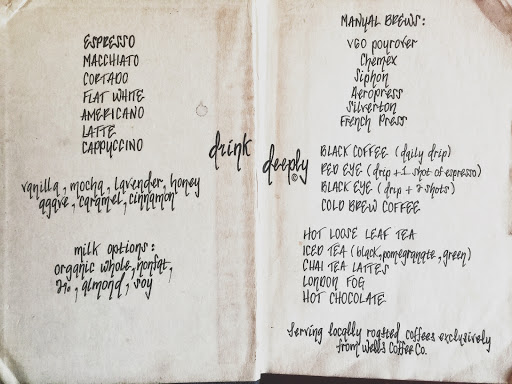 ESPRESSO
MACCHIATO
CORTADO
FLAT WHITE
AMERICANO
LATTE
CAPPUCCINO
vanilla, mocha, lavender, honey
agave, caramel, cinnamon
milk options:
organic whole, nonfat,
2%, almond, soy
drink deeply
©
MANUAL BREWS:
V60 pourover
Chemex
Siphon
Aeropress
Silverton
French Press
BLACK COFFEE (daily drip)
RED EYE (drip + 1 shot of espresso)
BLACK EYE (drip + 2 shots)
COLD BREW COFFEE
HOT LOOSE LEAF TEA
ICED TEA (black, pomegranate, green)
CHAI TEA LATTES
LONDON FOG
HOT CHOCOLATE
Serving locally roasted coffees exclusively
from Wells Coffee Co.